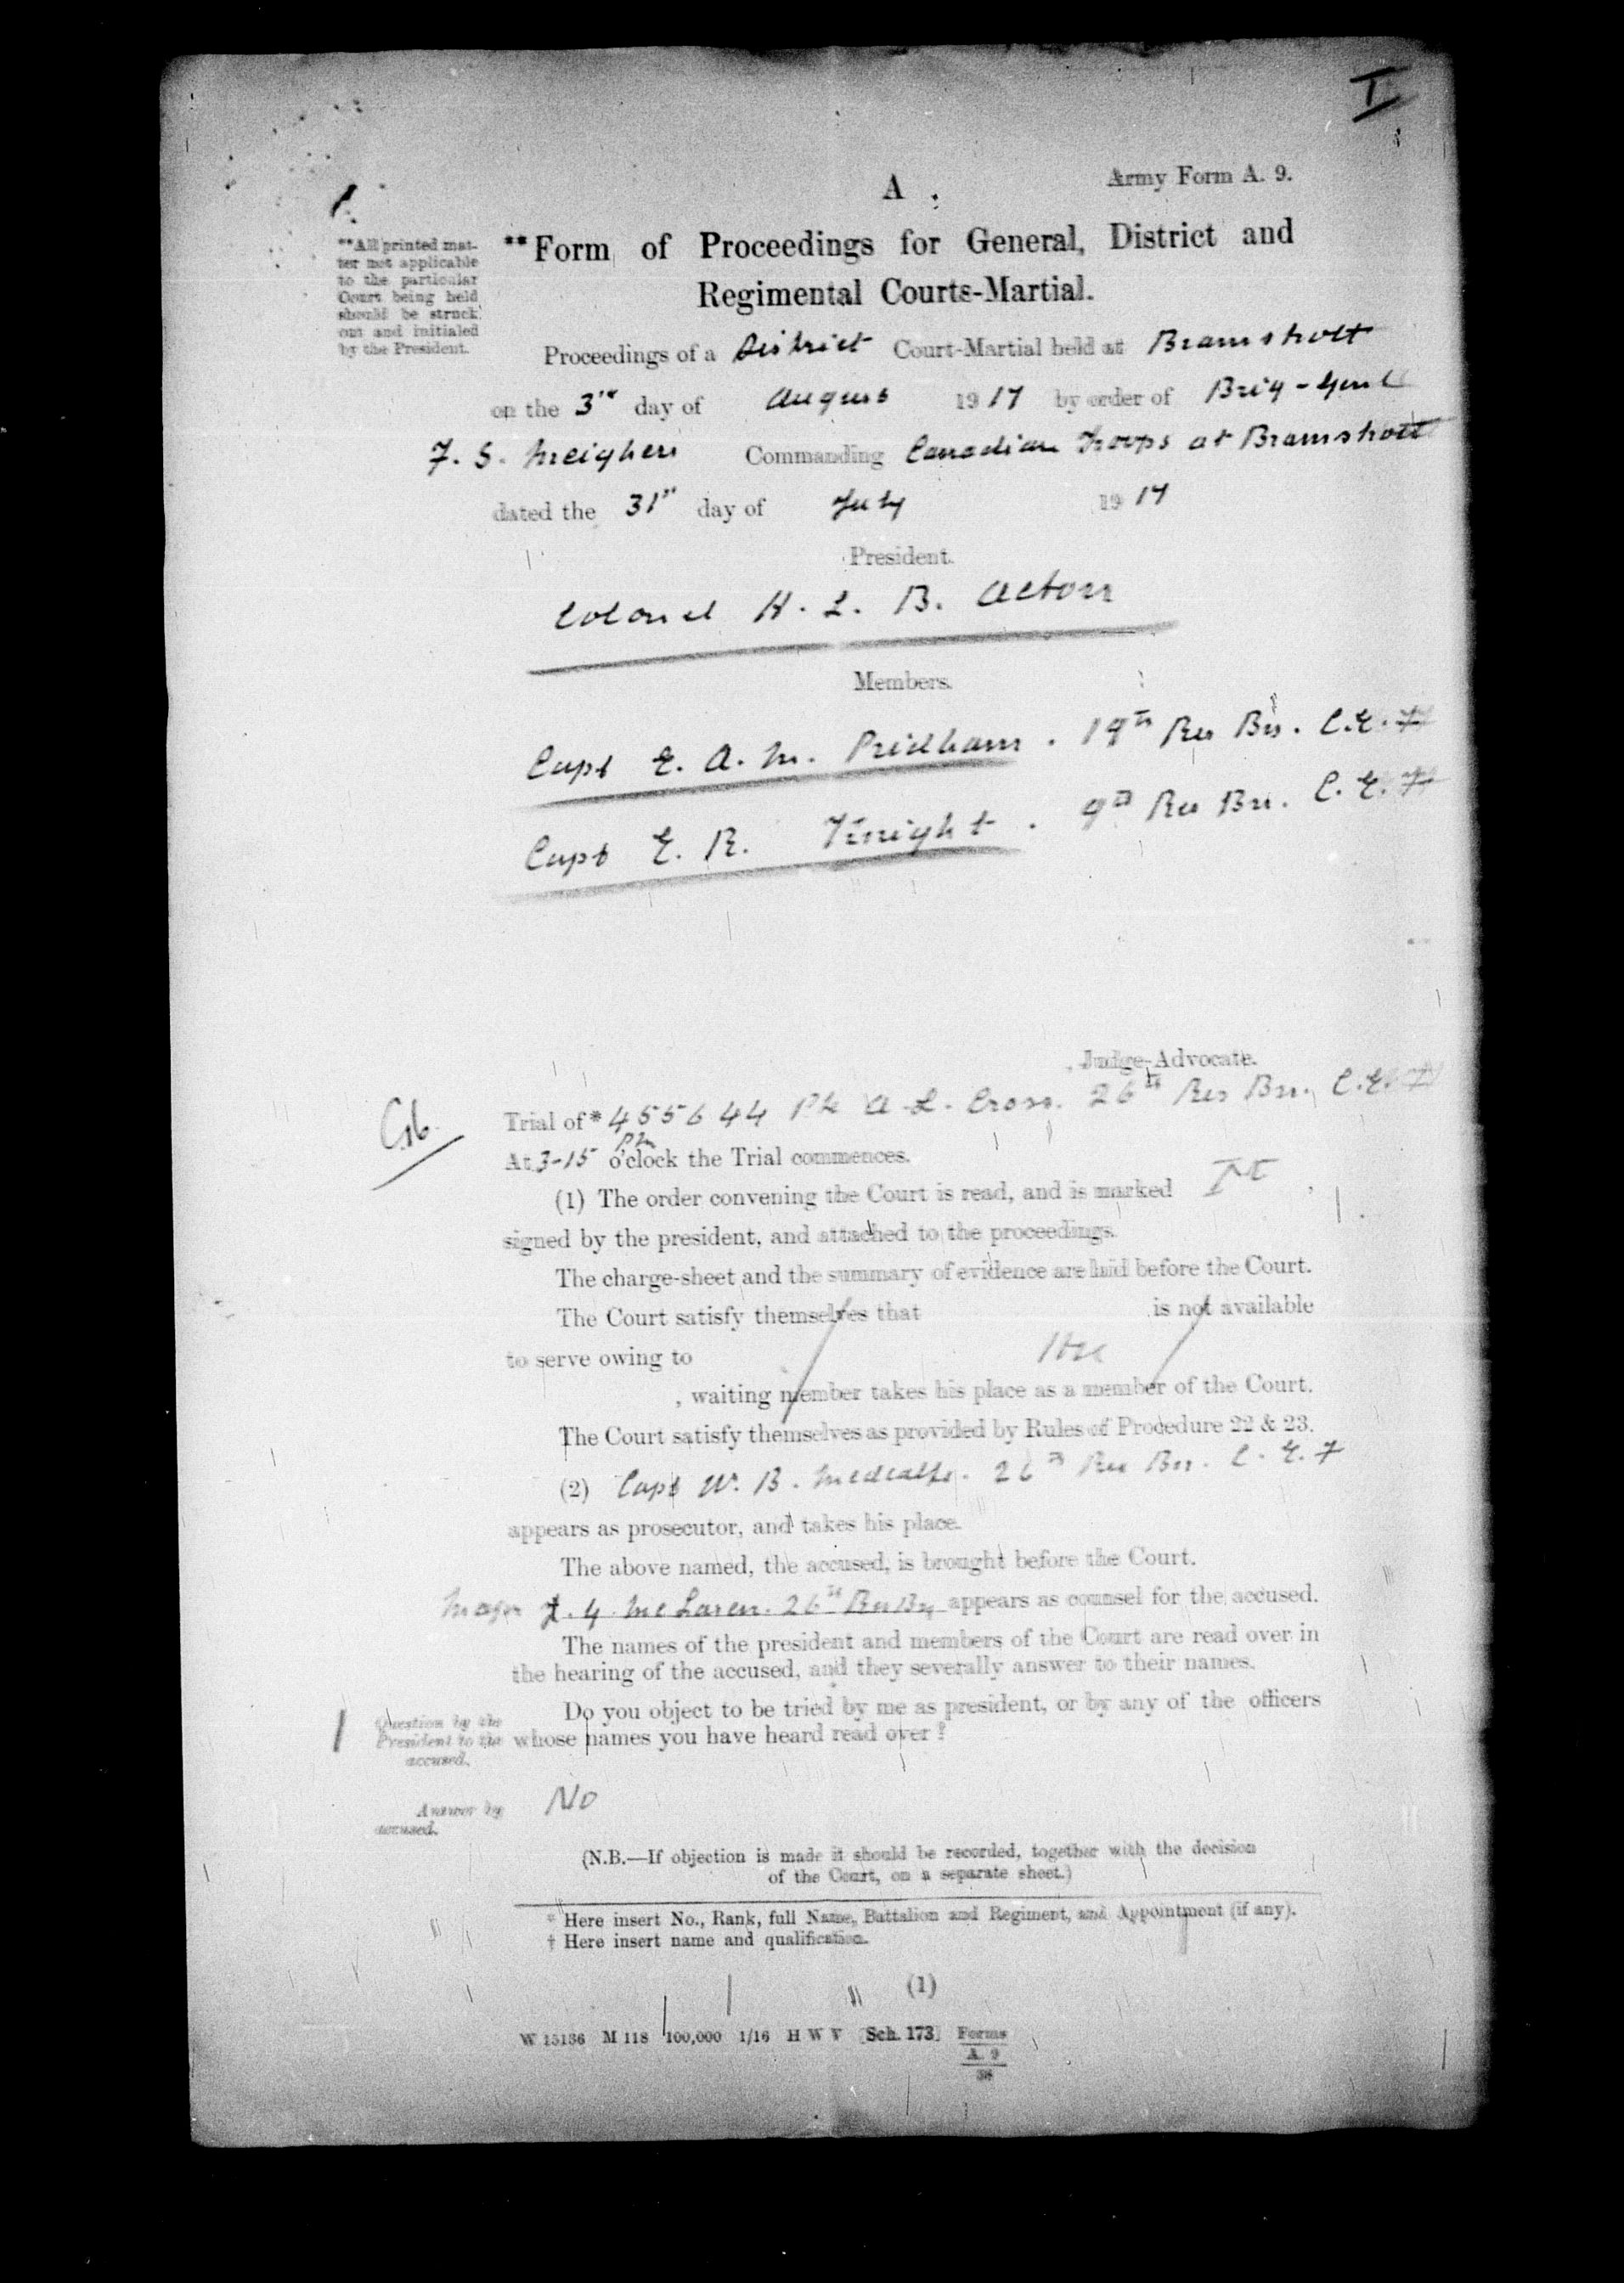 I
A
Army Form A. 9.
**All printed mat-
ter not applicable
to the particular
Court being held
should be struck
out and initialed
by the President.
**Form of Proceedings for General, District and
Regimental Courts-Martial.
Proceedings of a District Court-Martial held at Bramshott
on the 3rd day of August 1917 by order of Brig-Genl
F. S. Meighen Commanding Canadian Troops at Bramshott
dated the 31st day of July 1917
President.
Colonel H. L. B. Acton
Members.
Capt E. A. M. Pridham. 19th Res Bn. C.E.F
Capt E. R. Knight. 9th Res Bn. C.E.F
Judge-Advocate.
Trial of* 455644 Pte A. L. Cross. 26th Res Bn. C.E.F
At 3-15 pm o'clock the Trial commences.
(1) The order convening the Court is read, and is marked
signed by the president, and attached to the proceedings.
The charge-sheet and the summary of evidence are laid before the Court.
The Court satisfy themselves that is not available
to serve owing to
, waiting member takes his place as a member of the Court.
The Court satisfy themselves as provided by Rules of Procedure 22 & 23.
(2) Capt W. B. Medcalfe. 26th Res Bn. C.E.F
appears as prosecutor, and takes his place.
The above named, the accused, is brought before the Court.
Major J. G. McLaren. 26th Res Bn appears as counsel for the accused.
The names of the president and members of the Court are read over in
the hearing of the accused, and they severally answer to their names.
Question by the
President to the
accused.
Do you object to be tried by me as president, or by any of the officers
whose names you have heard read over?
Answer by
accused.
No
(N.B.—If objection is made it should be recorded, together with the decision
of the Court, on a separate sheet.)
* Here insert No., Rank, full Name, Battalion and Regiment, and Appointment (if any).
† Here insert name and qualification.
(1)
W 15136 M 118 100,000 1/16 H W V [Sch. 173] Forms
A. 9
38